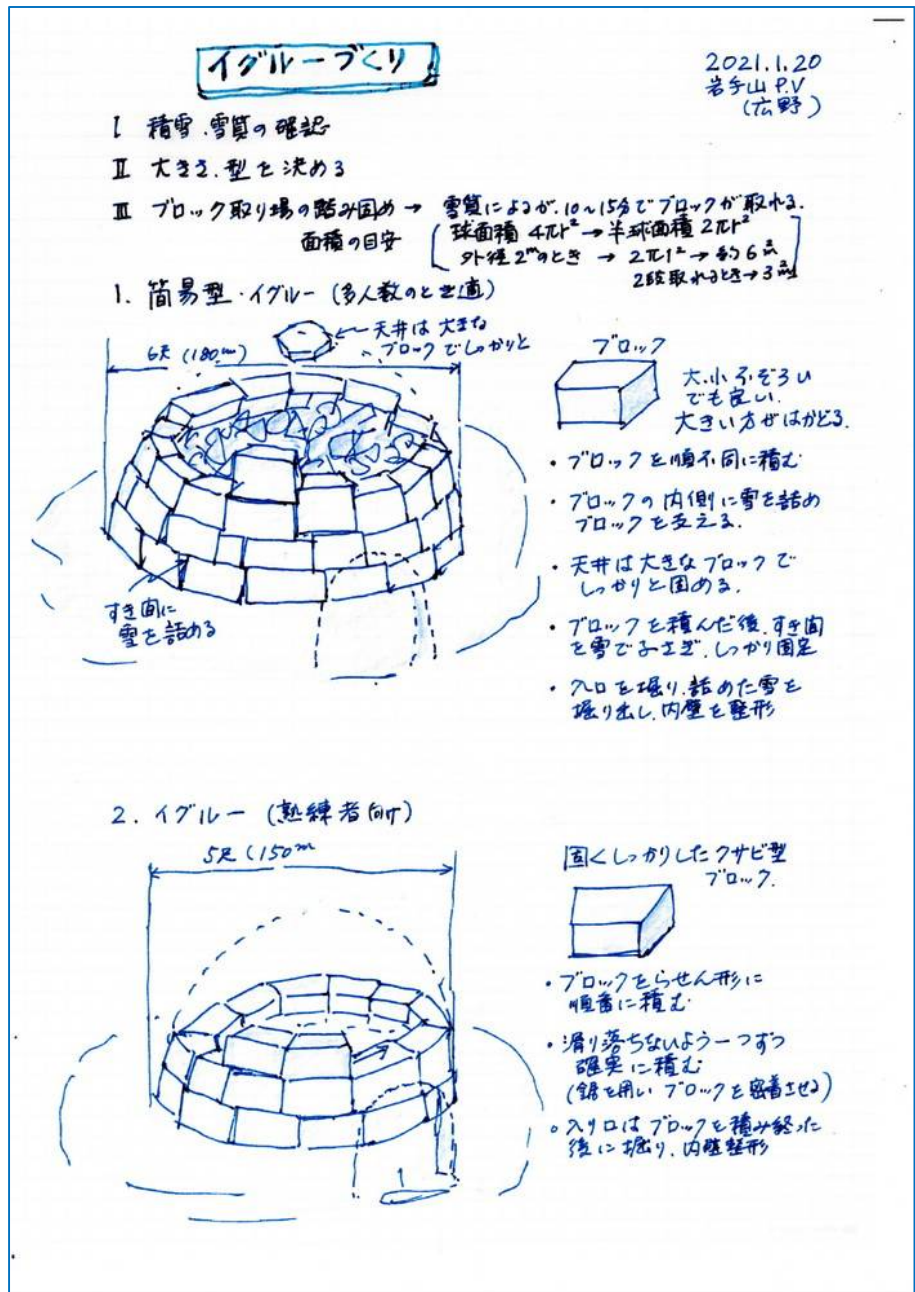 イグルーづくり
2021.1.20
岩手山 P.V
(広野)
I 積雪.雪質の確認
II 大きさ.型を決める
III ブロック取り場の踏み固め → 雪質によるが.10~15分でブロックが取れる.
面積の目安
球面積 4πr² → 半球面積 2πr²
外径 2mのとき → 2π1² → 約6㎡
2段取れるとき → 3㎡
1. 簡易型・イグルー (多人数のとき適)
←天井は大きな
ブロックでしっかりと
6尺 (180㎝)
すき間に
雪を詰める
ブロック
大.小 ふぞろい
でも良い.
大きい方がはかどる.
・ブロックを順不同に積む
・ブロックの内側に雪を詰め
ブロックを支える.
・天井は大きなブロックで
しっかりと固める.
・ブロックを積んだ後.すき間
を雪でふさぎ.しっかり固定
・入口を掘り.詰めた雪を
掘り出し.内壁を整形
2. イグルー (熟練者向け)
5尺 (150㎝
固くしっかりしたクサビ型
ブロック.
・ブロックをらせん形に
順番に積む
・滑り落ちないよう一つずつ
確実に積む
(鋸を用い ブロックを密着させる)
・入り口はブロックを積み終った
後に掘り.内壁整形